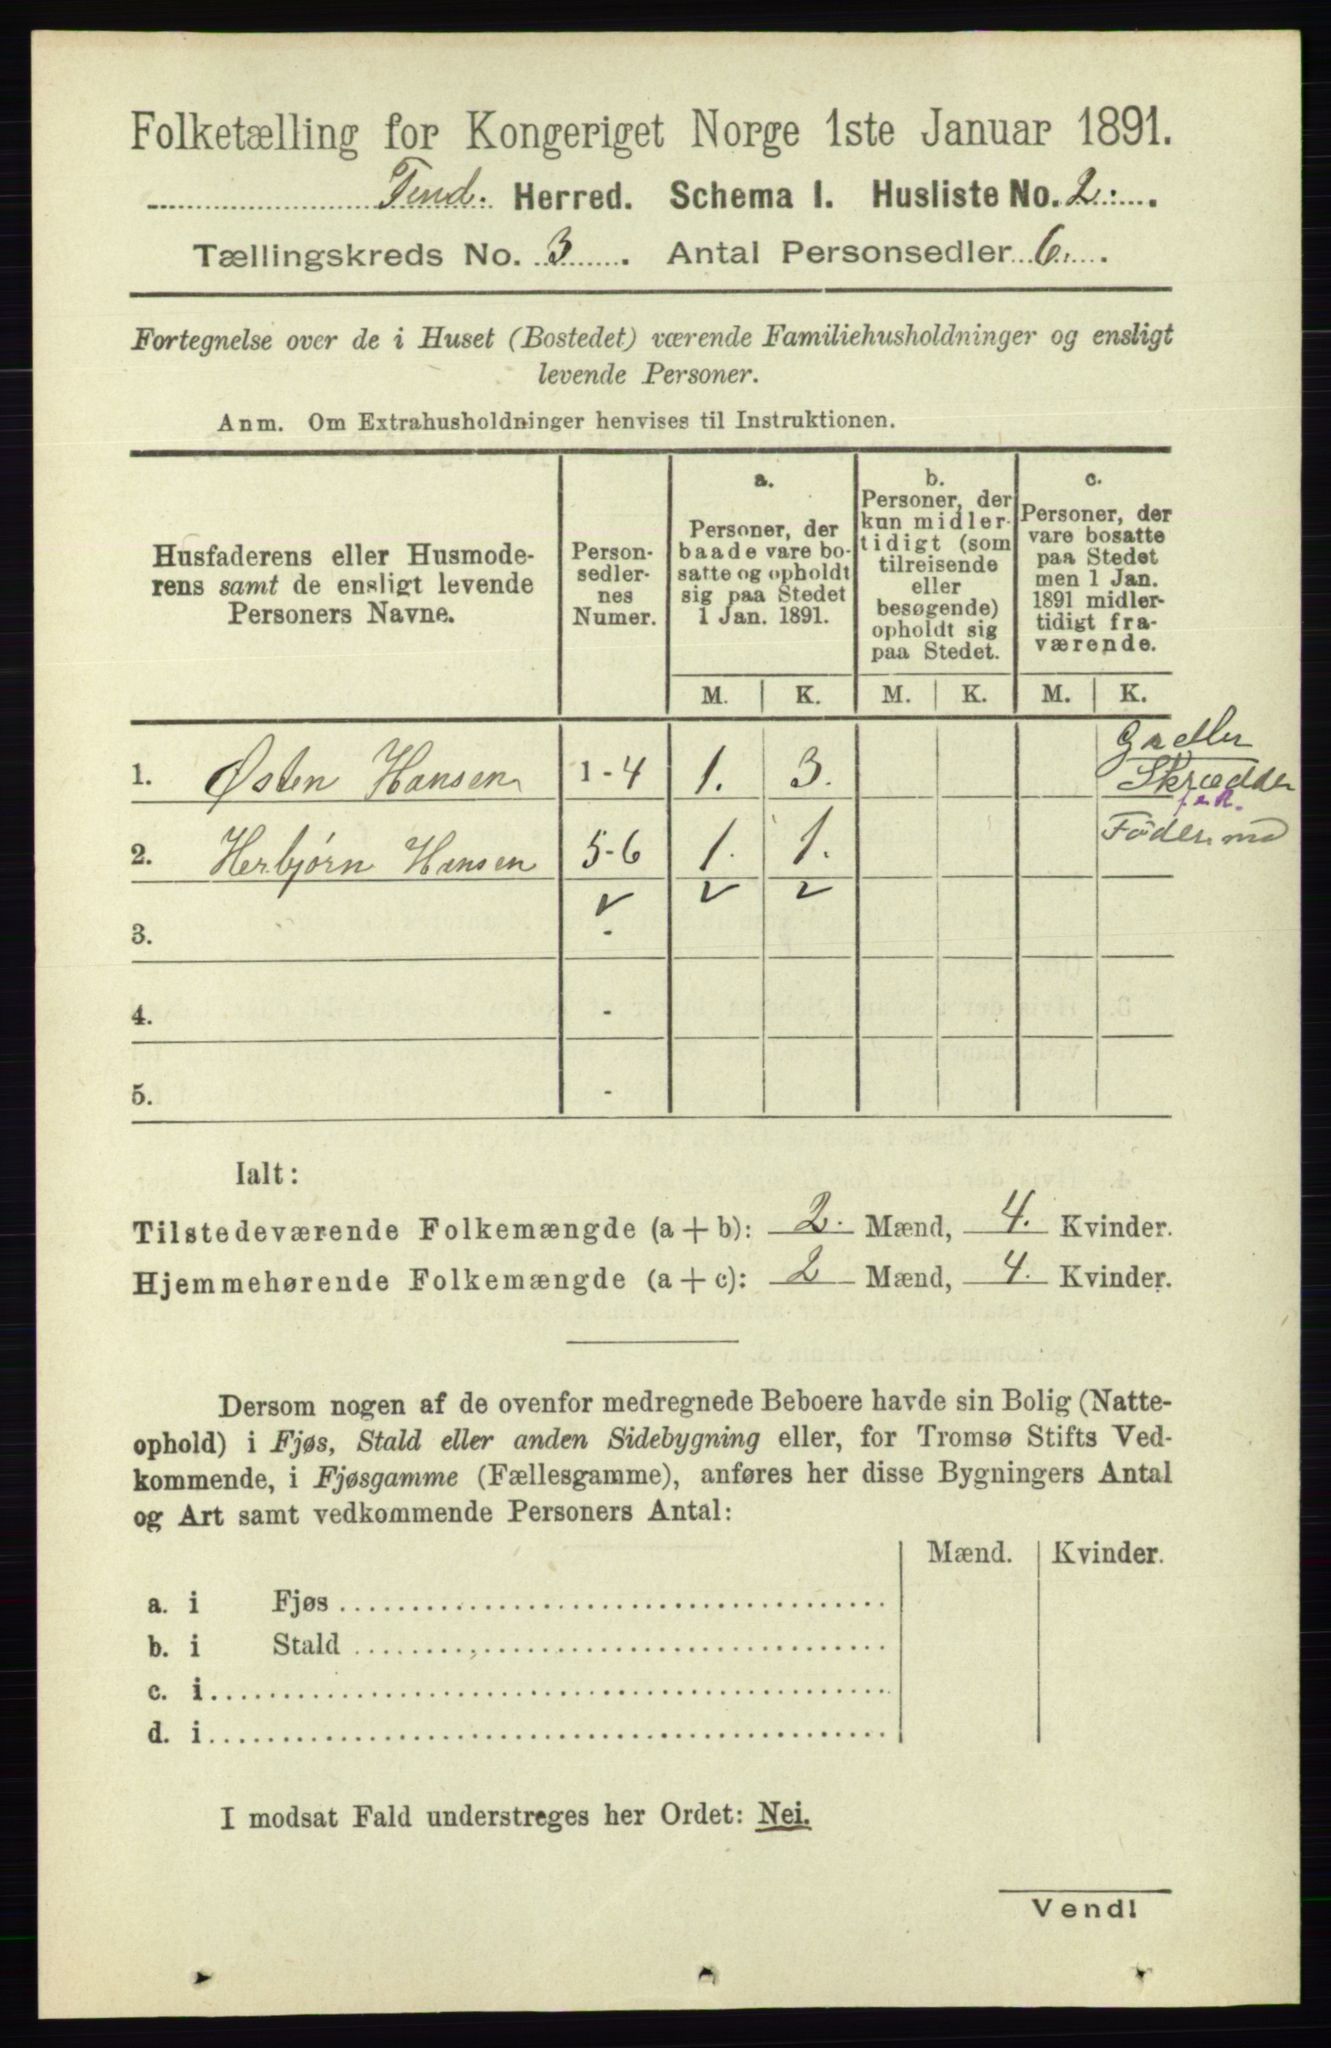 Folketælling for Kongeriget Norge 1ste Januar 1891.
Tind. Herred. Schema I. Husliste No. 2.
Tællingskreds No. 3. Antal Personsedler 6.
Fortegnelse over de i Huset (Bostedet) værende Familiehusholdninger og ensligt
levende Personer.
Anm. Om Extrahusholdninger henvises til Instruktionen.
Husfaderens eller Husmode-
rens samt de ensligt levende
Personers Navne.
Person-
sedler-
nes
Numer.
a.
Personer, der
baade vare bo-
satte og opholdt
sig paa Stedet
1 Jan. 1891.
b.
Personer, der
kun midler-
tidigt (som
tilreisende
eller
besøgende)
opholdt sig
paa Stedet.
c.
Personer, der
vare bosatte
paa Stedet
men 1 Jan.
1891 midler-
tidigt fra-
værende.
M. K. M. K. M. K.
1. Østen Hansen 1-4 1. 3.
Skrædder
2. Herbjørn Hansen 5-6 1. 1.
3. -
4. -
5. -
Ialt:
Tilstedeværende Folkemængde (a + b): 2. Mænd, 4. Kvinder.
Hjemmehørende Folkemængde (a + c): 2 Mænd, 4. Kvinder.
Dersom nogen af de ovenfor medregnede Beboere havde sin Bolig (Natte-
ophold) i Fjøs, Stald eller anden Sidebygning eller, for Tromsø Stifts Ved-
kommende, i Fjøsgamme (Fællesgamme), anføres her disse Bygningers Antal
og Art samt vedkommende Personers Antal:
Mænd. Kvinder.
a. i Fjøs
b. i Stald
c. i
d. i
I modsat Fald understreges her Ordet: Nei.
Vend!